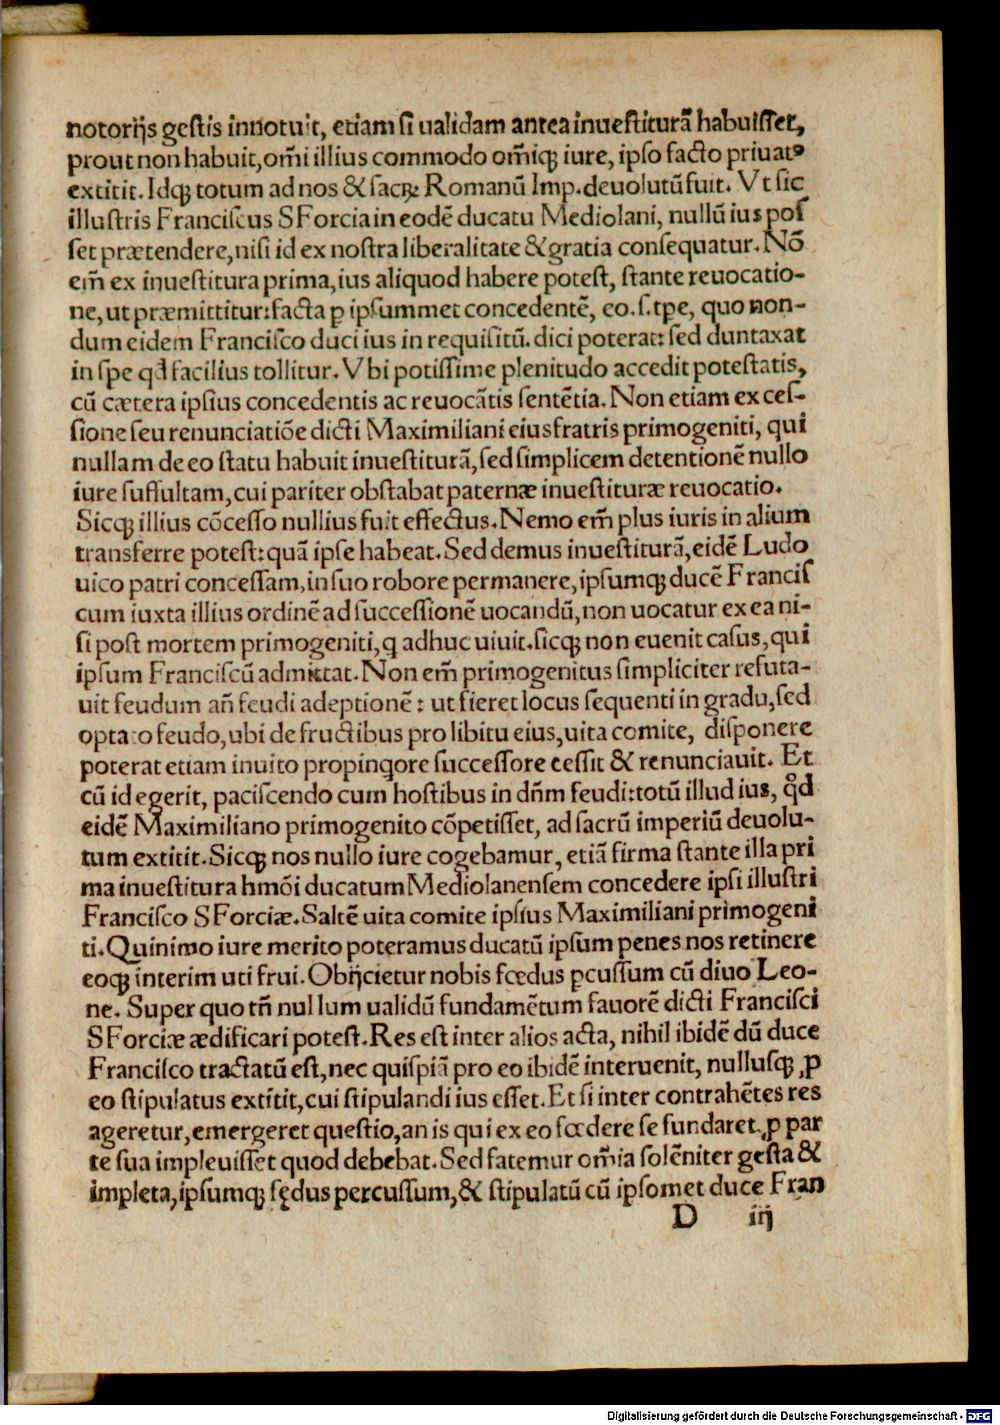 notorijs gestis innotuit, etiam si ualidam antea inuestiturã habuisset,
prout non habuit, om̃i illius commodo om̃iqꝫ iure, ipso facto priuatꝰ
extitit. Idqꝫ totum ad nos & sacꝝ Romanũ Imp. deuolutũ fuit. Vt sic
illustris Franciscus SForcia in eodẽ ducatu Mediolani, nullũ ius pos
set prætendere, nisi id ex nostra liberalitate & gratia consequatur. Nõ
em̃ ex inuestitura prima, ius aliquod habere potest, stante reuocatio-
ne, ut præmittitur: facta ꝑ ipsummet concedentẽ, eo. s. tpe, quo non-
dum eidem Francisco duci ius in requisitũ. dici poterat: sed duntaxat
in spe qđ facilius tollitur. Vbi potissime plenitudo accedit potestatis,
cũ cætera ipsius concedentis ac reuocãtis sentẽtia. Non etiam ex ces-
sione seu renunciatiõe dicti Maximiliani eius fratris primogeniti, qui
nullam de eo statu habuit inuestiturã, sed simplicem detentionẽ nullo
iure suffultam, cui pariter obstabat paternæ inuestituræ reuocatio.
Sicqꝫ illius cõcesso nullius fuit effectus. Nemo em̃ plus iuris in alium
transferre potest: quã ipse habeat. Sed demus inuestiturã, eidẽ Ludo
uico patri concessam, in suo robore permanere, ipsumqꝫ ducẽ Francis
cum iuxta illius ordinẽ ad successionẽ uocandũ, non uocatur ex ea ni-
si post mortem primogeniti, q adhuc uiuit. sicqꝫ non euenit casus, qui
ipsum Franciscũ admittat. Non em̃ primogenitus simpliciter refuta-
uit feudum añ feudi adeptionẽ: ut fieret locus sequenti in gradu, sed
optato feudo, ubi de fructibus pro libitu eius, uita comite, disponere
poterat etiam inuito propinqore successore cessit & renunciauit. Et
cũ id egerit, paciscendo cum hostibus in dñm feudi: totũ illud ius, qđ
eidẽ Maximiliano primogenito cõpetisset, ad sacrũ imperiũ deuolu-
tum extitit. Sicqꝫ nos nullo iure cogebamur, etiã firma stante illa pri
ma inuestitura hmõi ducatum Mediolanensem concedere ipsi illustri
Francisco SForciæ. Saltẽ uita comite ipsius Maximiliani primogeni
ti. Quinimo iure merito poteramus ducatũ ipsum penes nos retinere
eoqꝫ interim uti frui. Obijcietur nobis fœdus ꝑcussum cũ diuo Leo-
ne. Super quo tñ nullum ualidũ fundamẽtum fauorẽ dicti Francisci
SForciæ ædificari potest. Res est inter alios acta, nihil ibidẽ dũ duce
Francisco tractatũ est, nec quispiã pro eo ibidẽ interuenit, nullusqꝫ ꝓ
eo stipulatus extitit, cui stipulandi ius esset. Et si inter contrahẽtes res
ageretur, emergeret questio, an is qui ex eo fœdere se fundaret, ꝓ par
te sua impleuisset quod debebat. Sed fatemur om̃ia solẽniter gesta &
impleta, ipsumqꝫ fędus percussum, & stipulatũ cũ ipsomet duce Fran
D iij
Digitalisierung gefördert durch die Deutsche Forschungsgemeinschaft - DFG